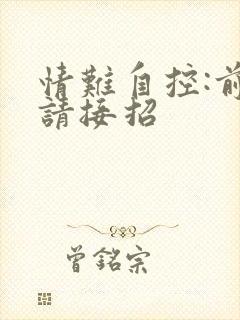 情難自控:前
請接招
曾銘宗